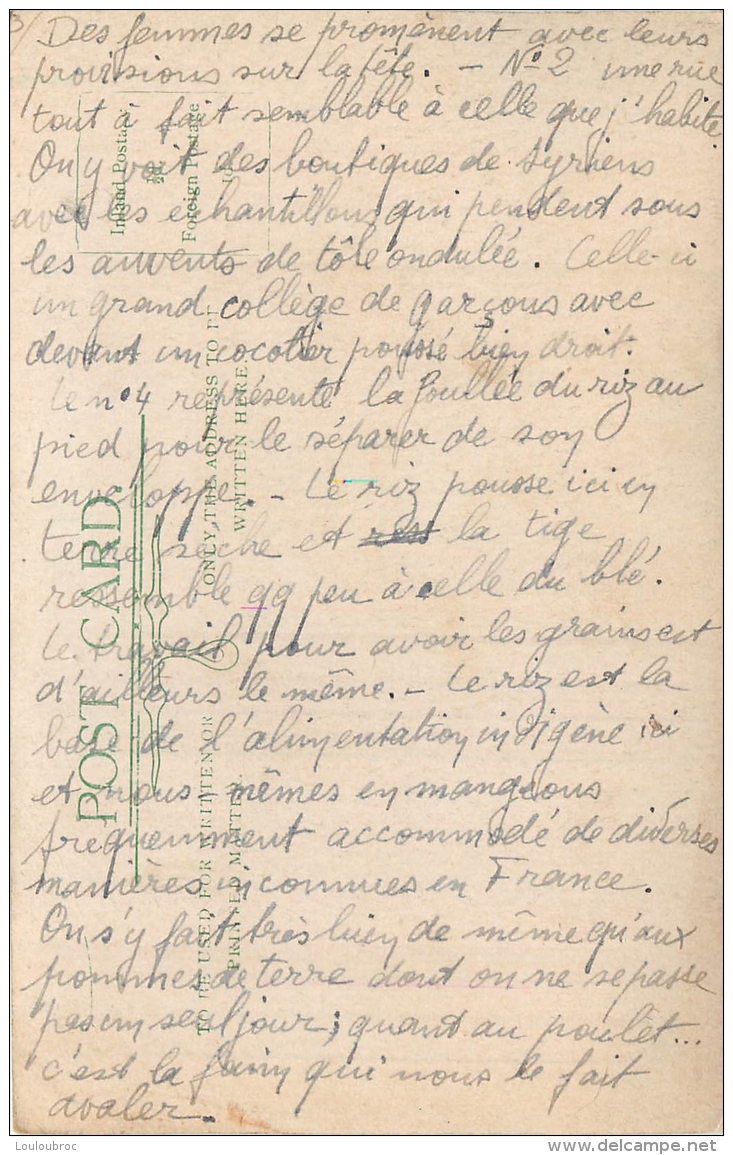 3/ Des femmes se promènent avec leurs
provisions sur la tête. - N° 2 une rue
tout à fait semblable à celle que j'habite
On y voit des boutiques de Syriens
avec les échantillons qui pendent sous
les auvents de tôle ondulée. Celle-ci
un grand collège de garçons avec
devant un cocotier poussé bien droit.
Le n° 4 représente la foullée du riz au
pied pour le séparer de son
enveloppe. - Le riz pousse ici en
terre sèche et la tige
ressemble qq peu à celle du blé.
Le travail pour avoir les grains est
d'ailleurs le même. - Le riz est la
base de l'alimentation indigène ici
et nous mêmes en mangeons
frequemment accommodé de diverses
manières inconnues en France.
On s'y fait très bien de même qu'aux
pommes de terre dont on ne se passe
pas un seul jour ; quant au poulet...
c'est la faim qui nous le fait
avaler.
POST CARD.
TO BE USED FOR WRITTEN OR
PRINTED MATTER.
ONLY THE ADDRESS TO BE
WRITTEN HERE
Inland Postage
Foreign Postage
Louloubroc
delcampe.net